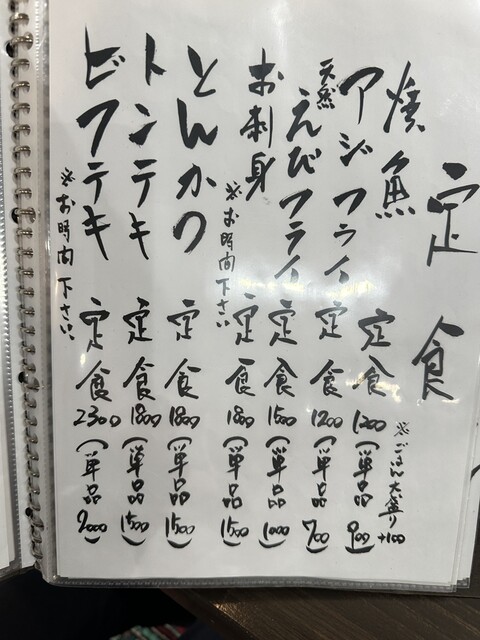 定食
※ごはん大盛り+100
焼魚定食1200(単品900)
アジフライ定食1200(単品700)
天然えびフライ定食1500(単品1000)
お刺身定食1800(単品1500)
※お時間下さい
とんかつ定食1800(単品1500)
トンテキ定食1800(単品1500)
ビフテキ定食2300(単品2000)
※お時間下さい。